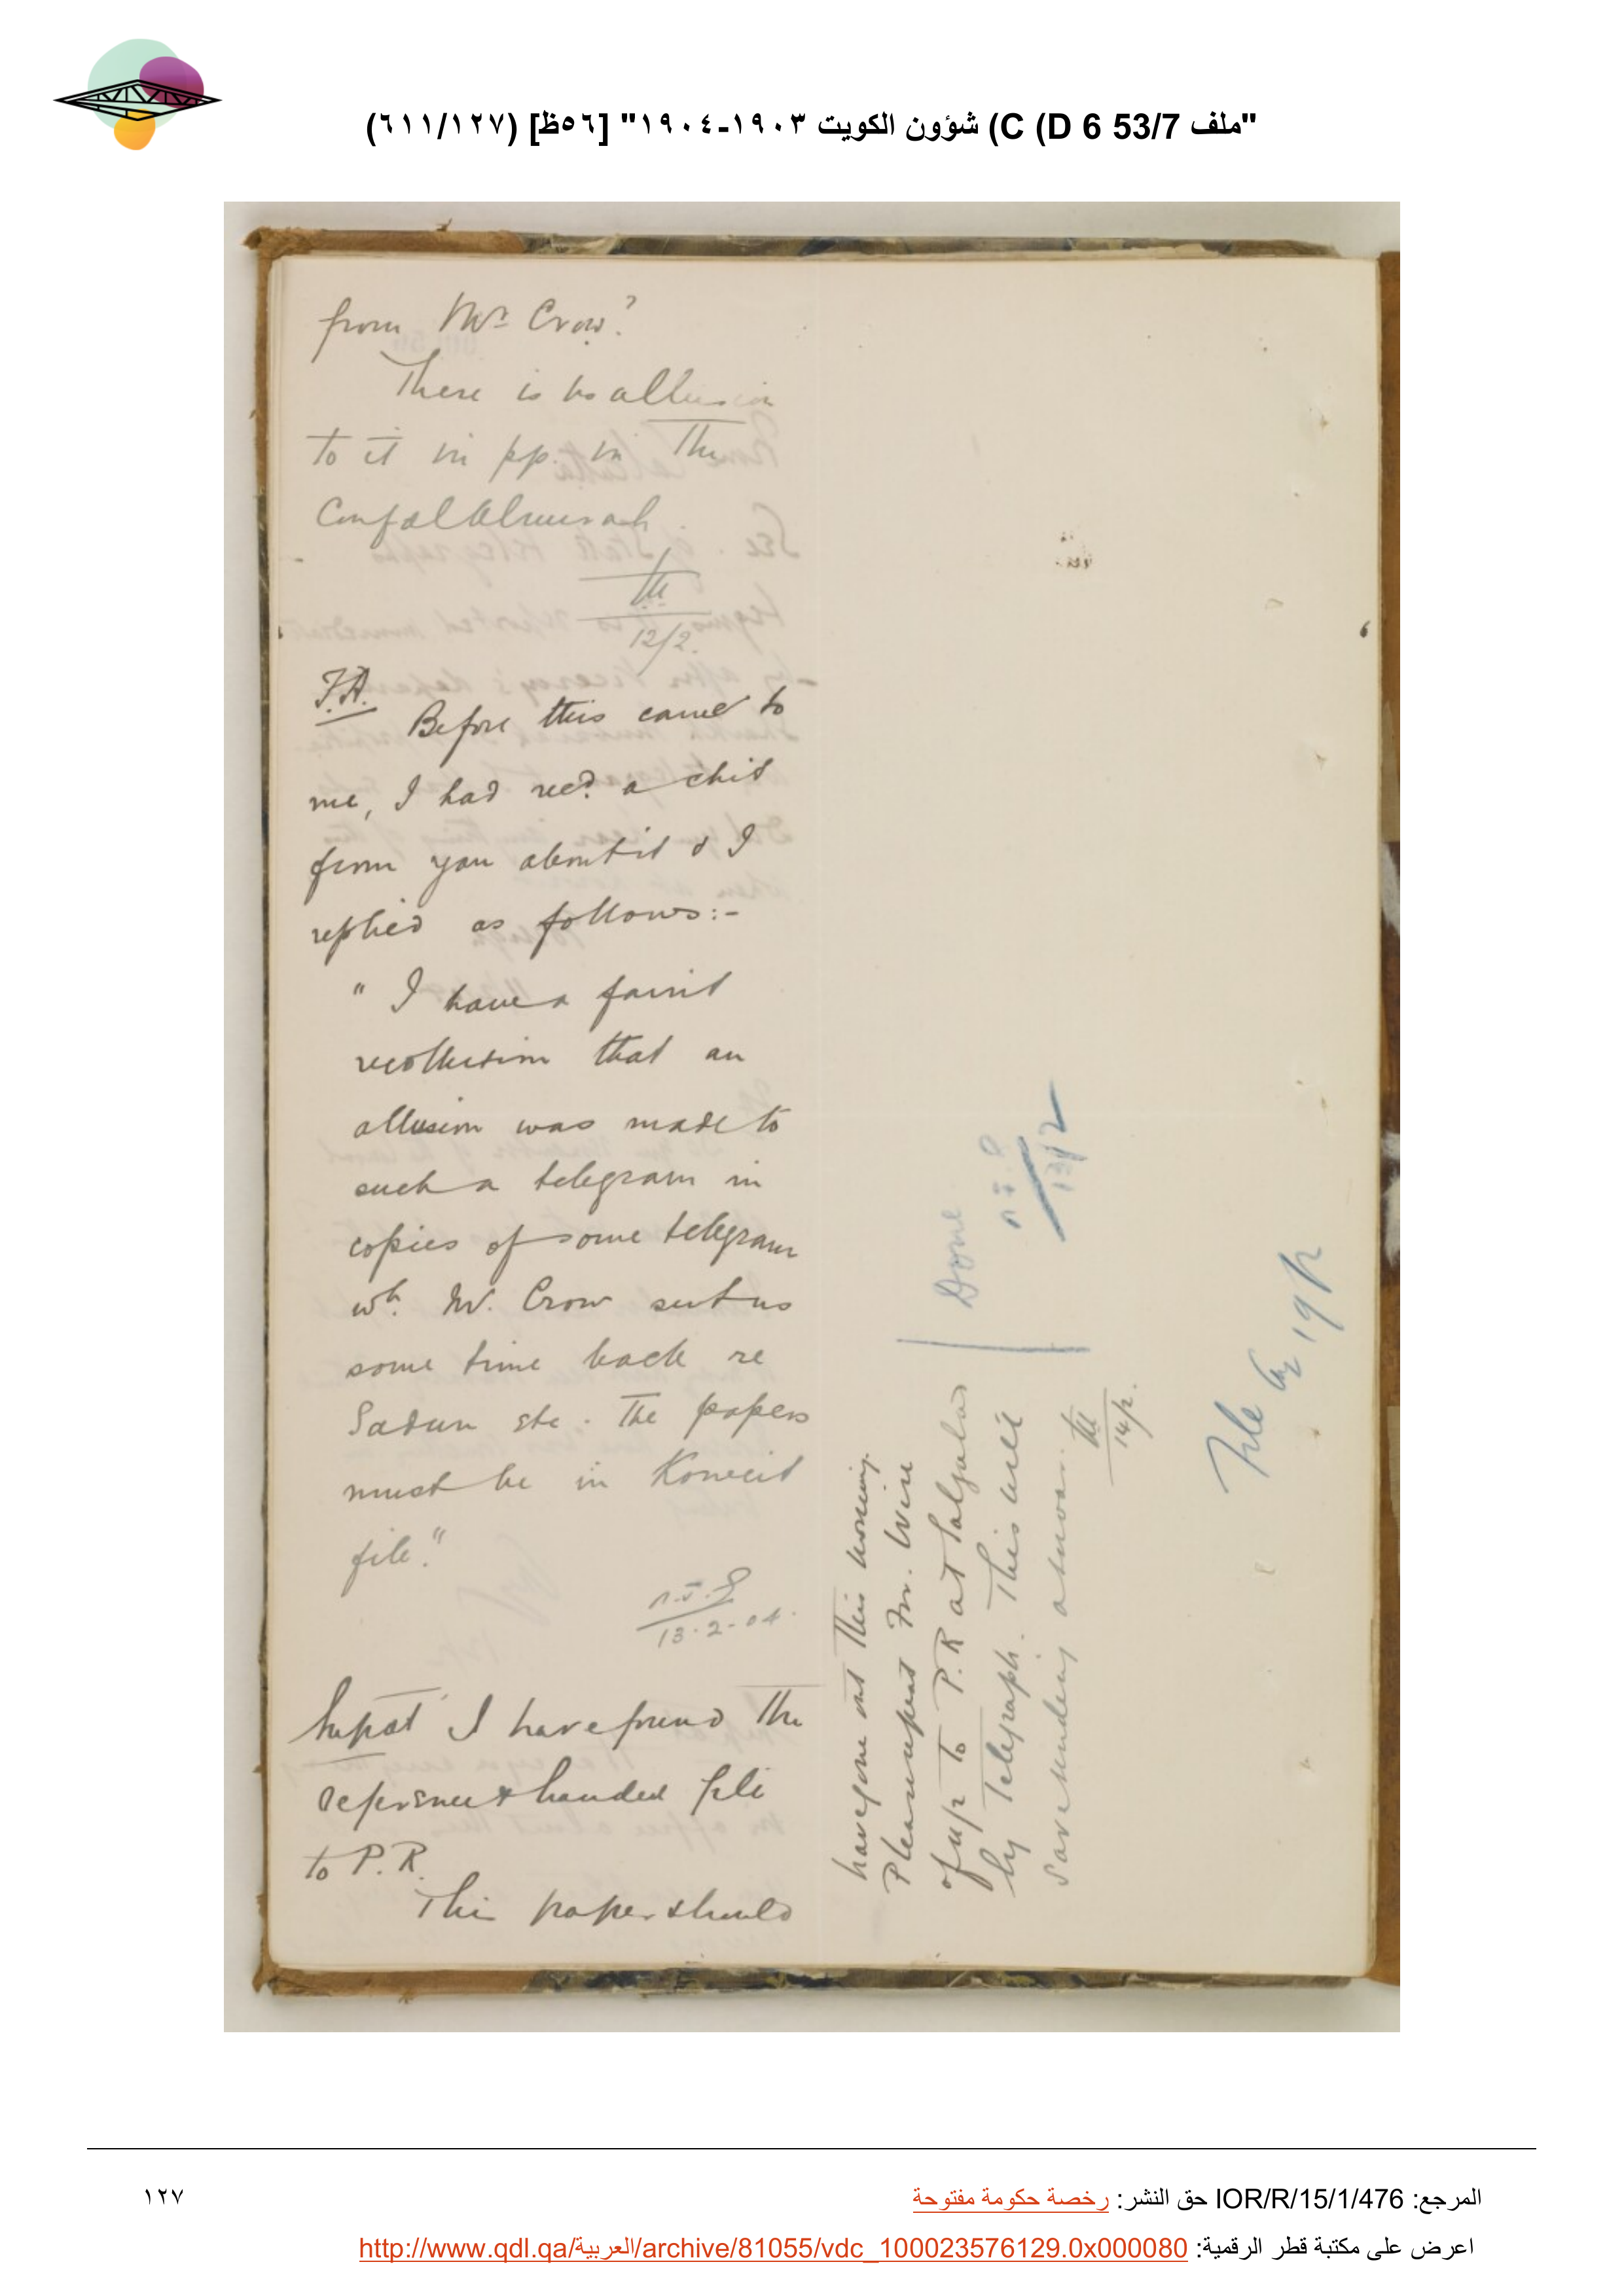 "ملف 53/7 C (D 6) شؤون الكويت ١٩٠٣-١٩٠٤" [٥٦ظ] (٦١١/١٢٧)
from Mr Crow?
There is no allusion
to it in pp. in The
Confdl Almirah
12/2.
F.A.
Before this came to
me, I had recd. a chit
from you about it & I
replied as follows:-
"I have a faint
recollection that an
allusion was made to
such a telegram in
copies of some telegram
wh. Mr. Crow sent us
some time back re
Sadun etc. The papers
must be in Koweit
file."
13.2.04.
I have found the
reference & handed file
to P.R.
This paper should
have gone out this morning.
Please repeat Fr. Wire
of 11/2 to P.R at
by Telegraph. This will
save sending
14/2.
Done
13/2
File
19/2
المرجع: IOR/R/15/1/476 حق النشر: رخصة حكومة مفتوحة
١٢٧
اعرض على مكتبة قطر الرقمية: http://www.qdl.qa/العربية/archive/81055/vdc_100023576129.0x000080